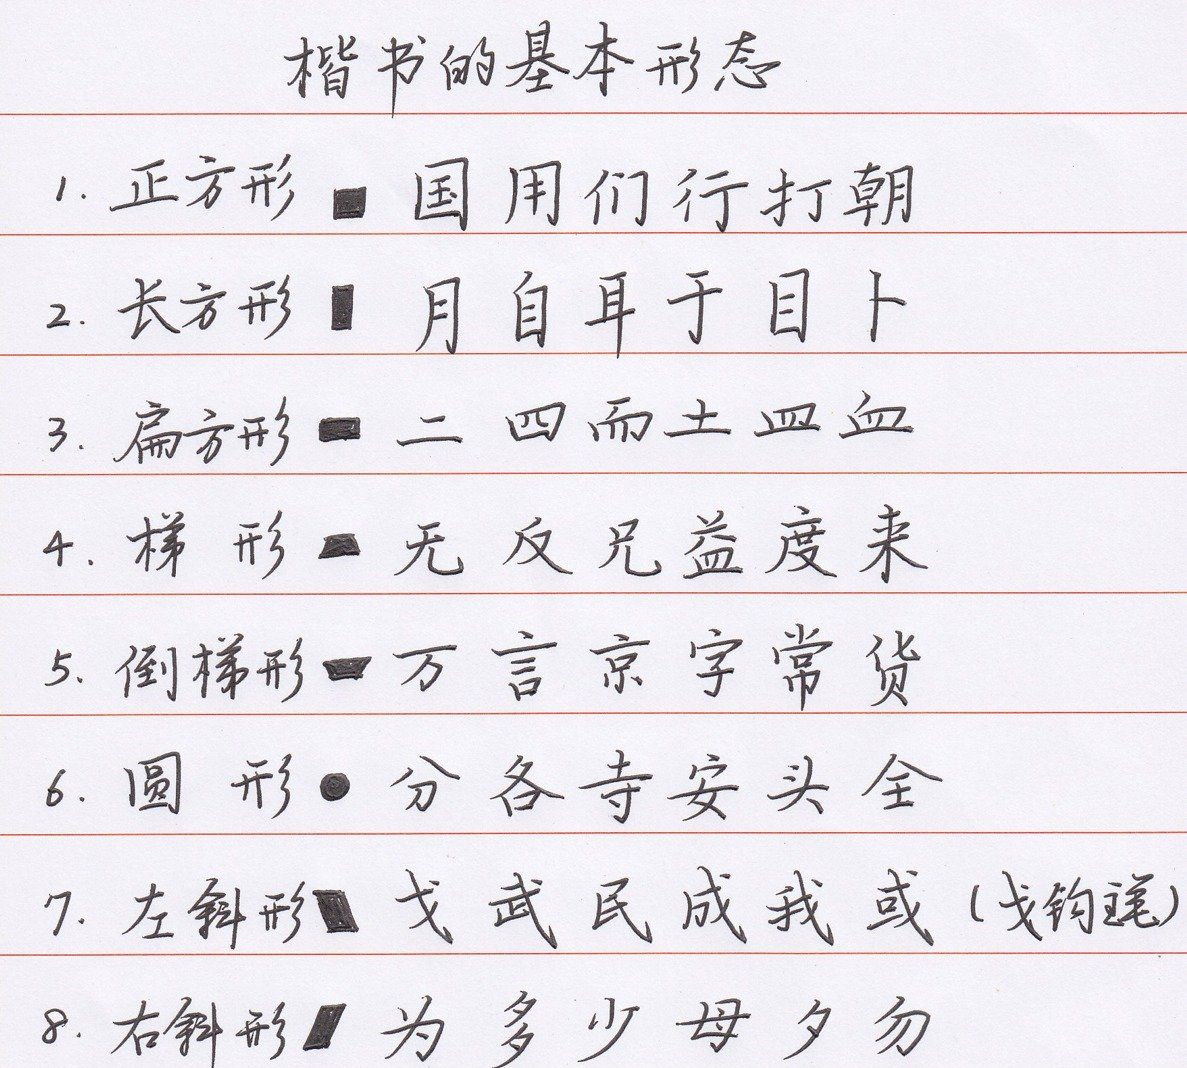 楷书的基本形态
1. 正方形 ■ 国用们行打朝
2. 长方形 ▮ 月自耳于目卜
3. 扁方形 ▬ 二四而土皿血
4. 梯形 无反兄益度来
5. 倒梯形 万言京字常货
6. 圆形 ● 分各寺安头全
7. 左斜形 戈武民成我或(戈钩)
8. 右斜形 为多少母夕勿